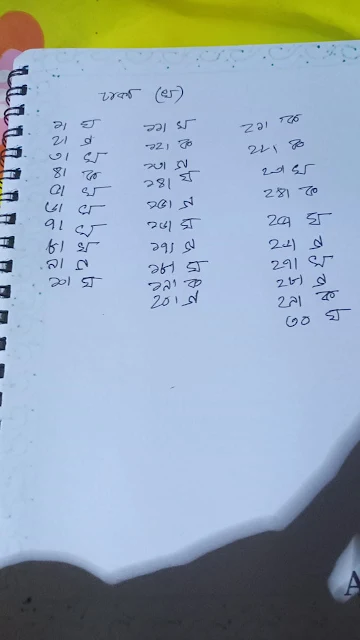 (খ)
১। ঘ
২। গ
৩। খ
৪। ক
৫। খ
৬। খ
৭। খ
৮। খ
৯। গ
১০। ঘ
১১। ঘ
১২। ক
১৩। গ
১৪। ঘ
১৫। গ
১৬। ঘ
১৭। গ
১৮। ঘ
১৯। ক
২০। গ
২১। ক
২২। ক
২৩। খ
২৪। ক
২৫। ঘ
২৬। গ
২৭। খ
২৮। গ
২৯। ক
৩০ ঘ
A